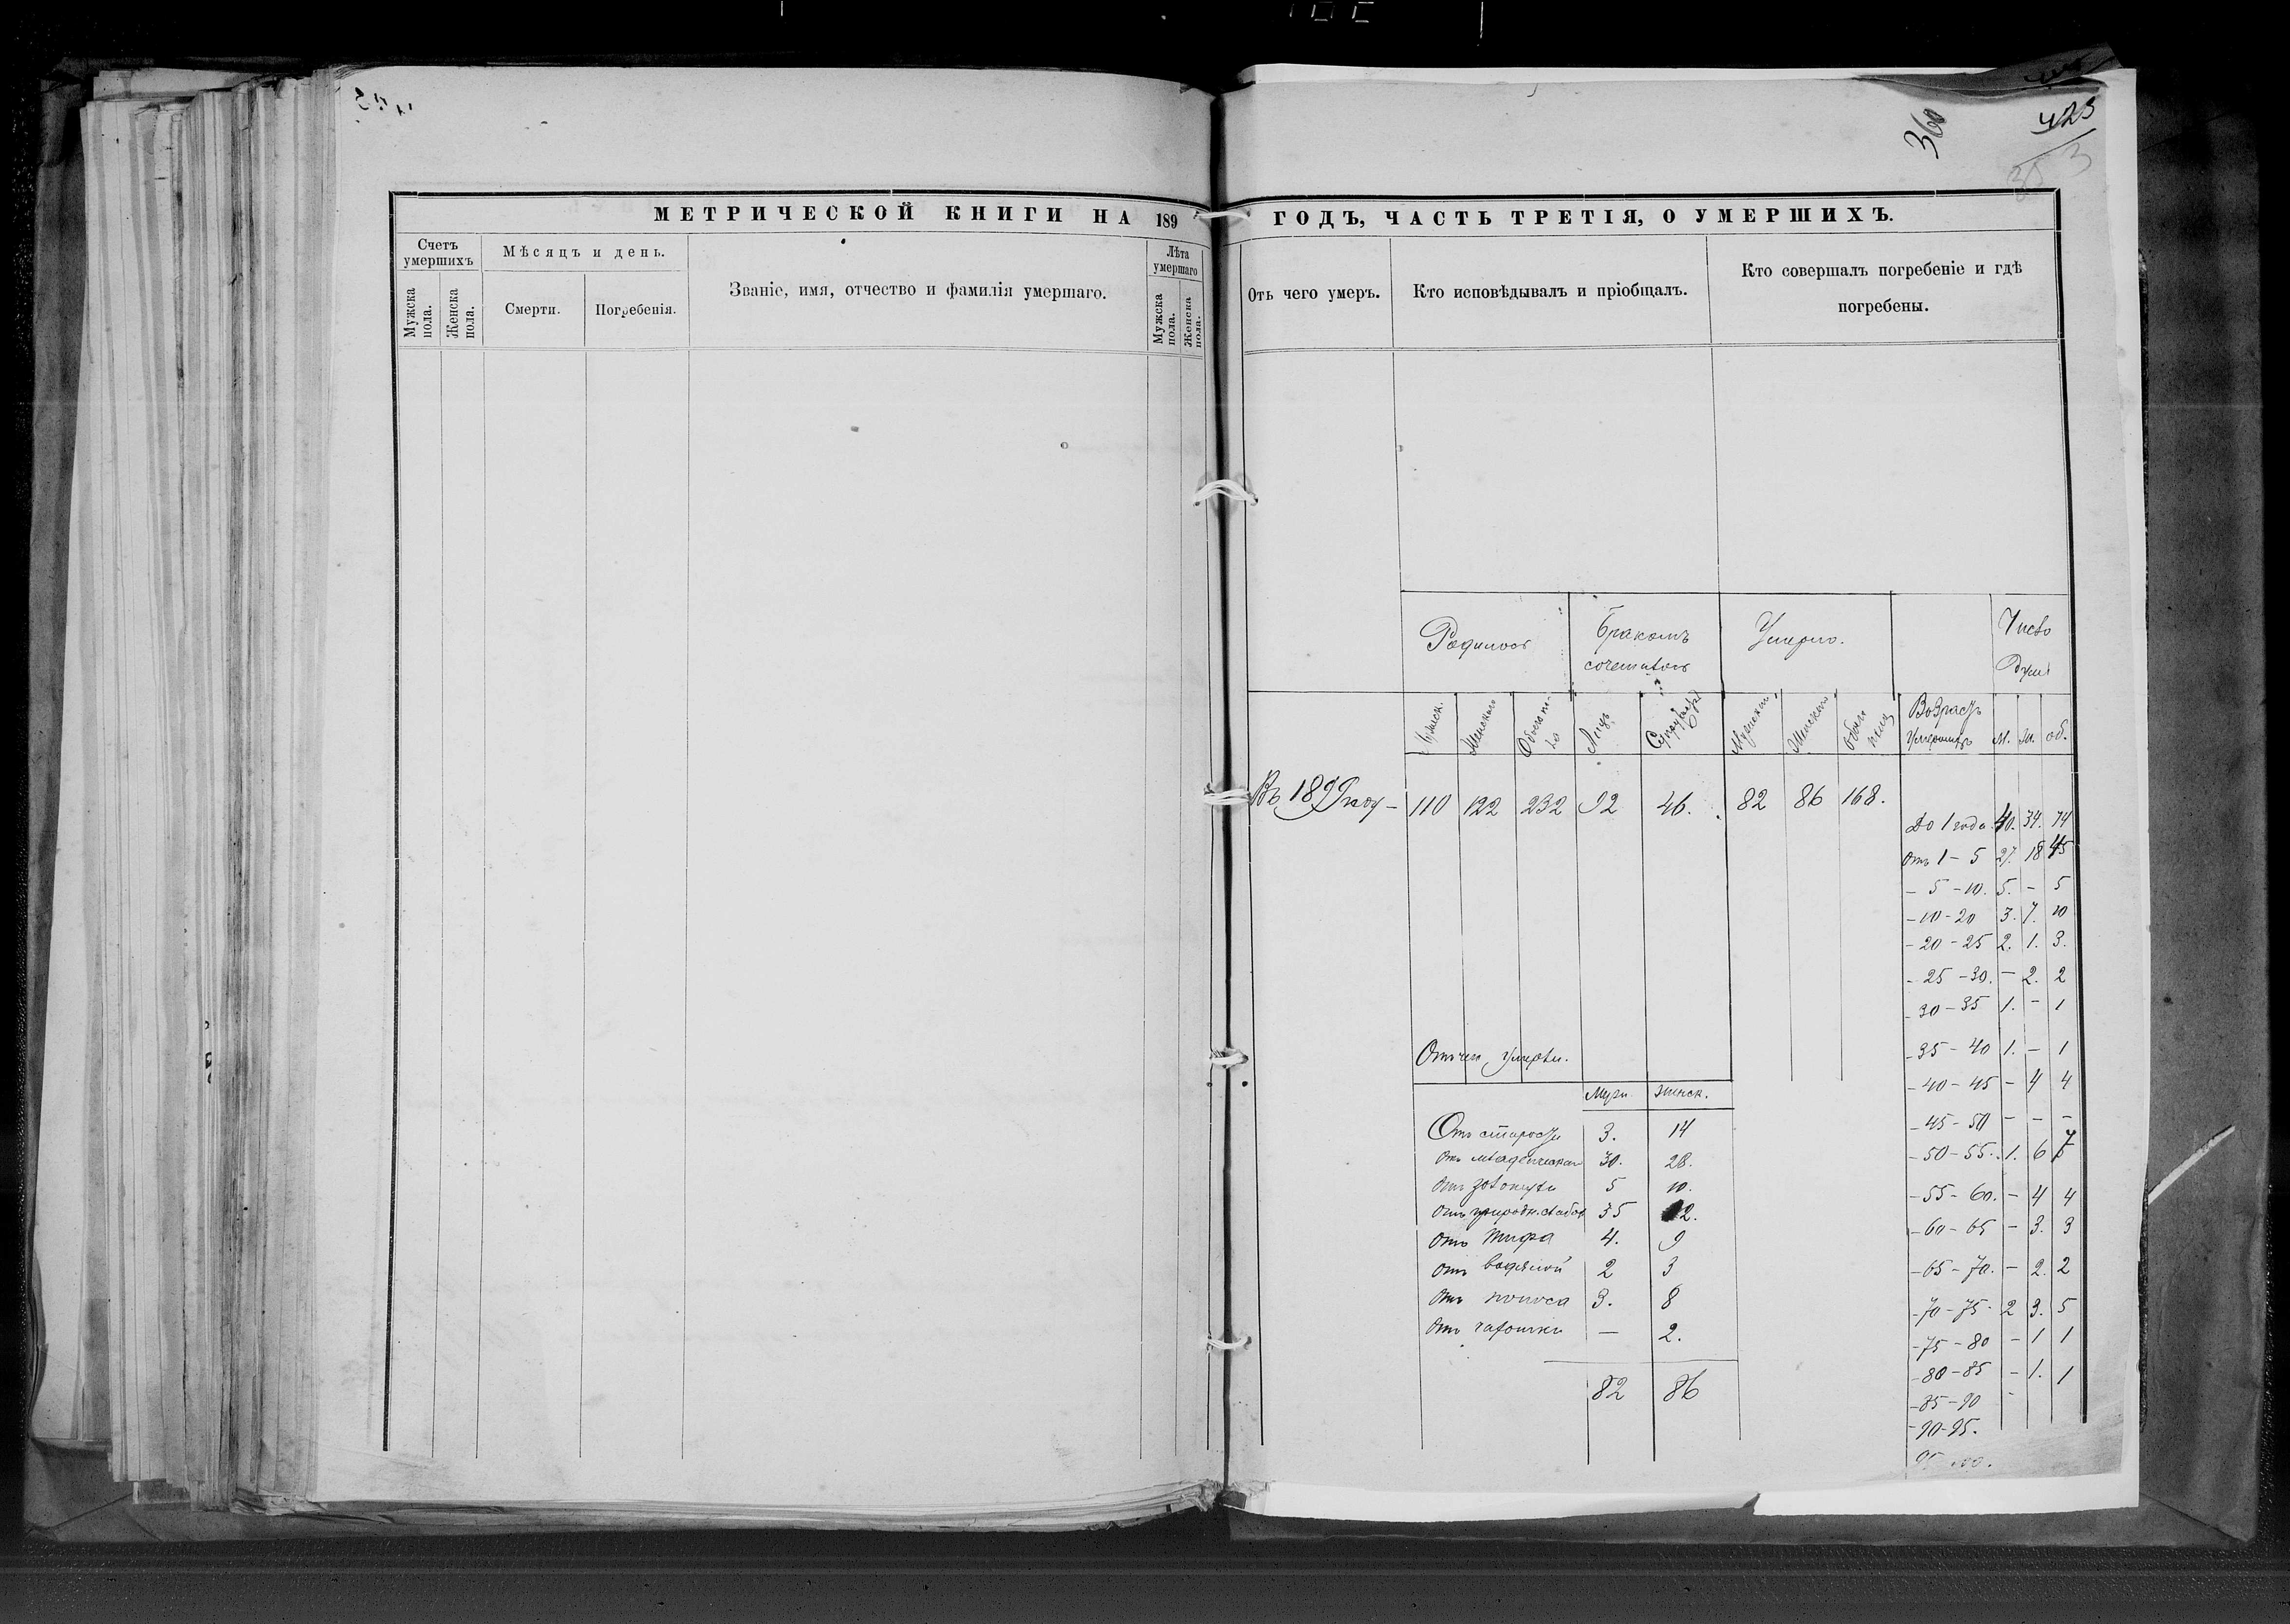 360
423
353
МЕТРИЧЕСКОЙ КНИГИ НА 189
Счетъ умершихъ
Мѣсяцъ и день.
Званіе, имя, отчество и фамилія умершаго.
Лѣта умершаго
Мужска пола.
Женска пола.
Смерти.
Погребенія.
Мужска пола.
Женска пола.
ГОДЪ, ЧАСТЬ ТРЕТІЯ, О УМЕРШИХЪ.
Отъ чего умеръ.
Кто исповѣдывалъ и пріобщалъ.
Кто совершалъ погребеніе и гдѣ
погребены.
Родилось
Бракомъ
сочеталось
Умерло.
Число
душъ
Женскаго
Лицъ
Мужскаго
Женскаго
Возрастъ
умершихъ
М.
Ж.
об.
Въ 1899 году – 110 122 232 92 46. 82 86 168.
До 1 года 40. 34. 74
Отъ 1 – 5 27. 18 45
– 5 – 10. 5. – 5
– 10 – 20 3. 7. 10
– 20 – 25 2. 1. 3.
– 25 – 30. – 2. 2
– 30 – 35 1. – 1
– 35 – 40 1. – 1
– 40 – 45 – 4 4
– 45 – 50 – – –
– 50 – 55. 1. 6 7
– 55 – 60. – 4 4
– 60 – 65 – 3. 3
– 65 – 70. – 2. 2
– 70 – 75. 2 3. 5
– 75 – 80 – 1 1
– 80 – 85 – 1. 1
– 85 – 90 –
– 90 – 95.
Отчего умерли.
Муж Женск.
Отъ старости 3. 14
Отъ младенческой 30. 28.
Отъ золотухи 5 10.
Отъ природн. слабос 35 12.
Отъ тифа 4. 9
Отъ водяной 2 3
Отъ поноса 3. 8
Отъ чахотки — 2.
82 86